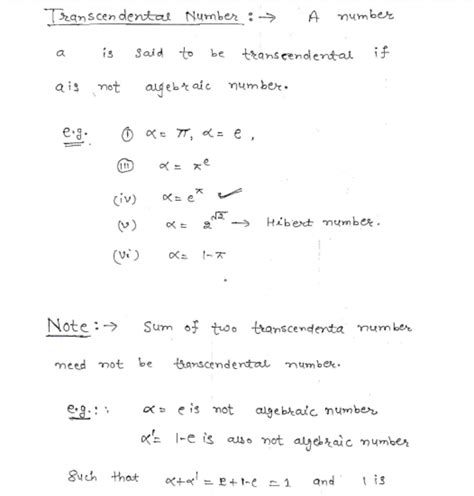 Transcendental Number :→ A number
a is said to be transcendental if
a is not algebraic number.
e.g. (i) α = π, α = e ,
(iii) α = π^e
(iv) α = e^π ✓
(v) α = 2^√2 → Hibert number.
(vi) α = 1-π
Note :→ Sum of two transcenda number
need not be transcendental number.
e.g. : : α = e is not algebraic number
α' = 1-e is also not algebraic number
Such that α+α' = e+1-e = 1 and 1 is